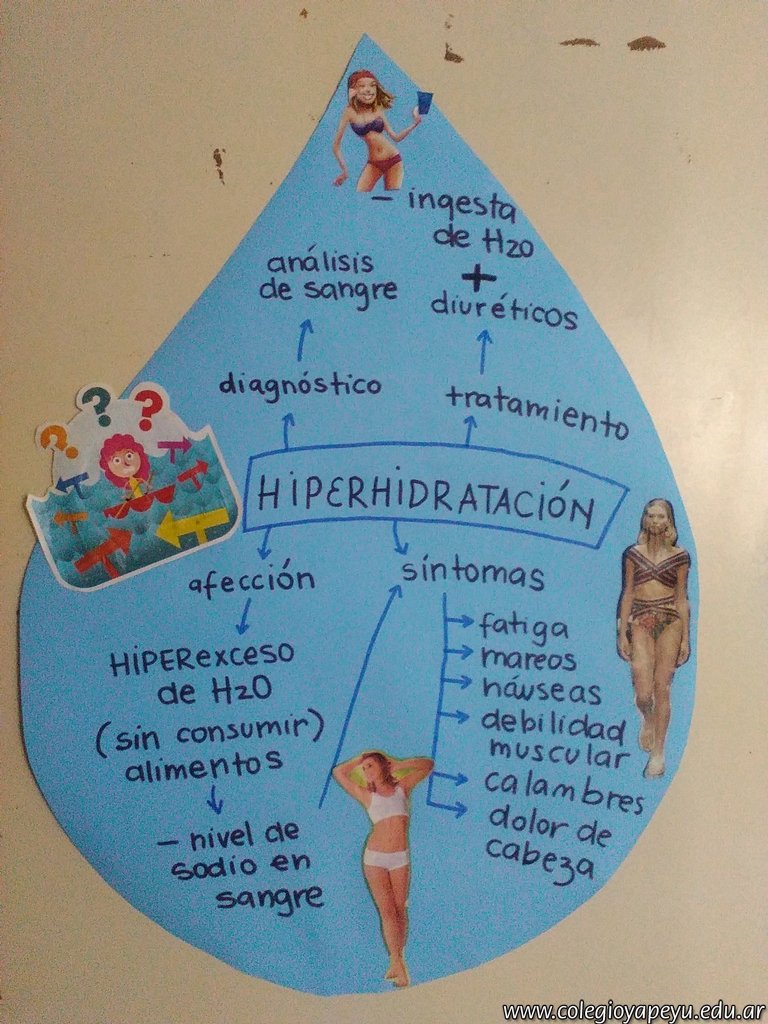 - ingesta
de H2O
+
diuréticos
análisis
de sangre
diagnóstico
tratamiento
HiPERHiDRATACiÓN
afección
síntomas
HiPERexceso
de H2O
(sin consumir)
alimentos
- nivel de
sodio en
sangre
fatiga
mareos
náuseas
debilidad
muscular
calambres
dolor de
cabeza
? ? ?
www.colegioyapeyu.edu.ar